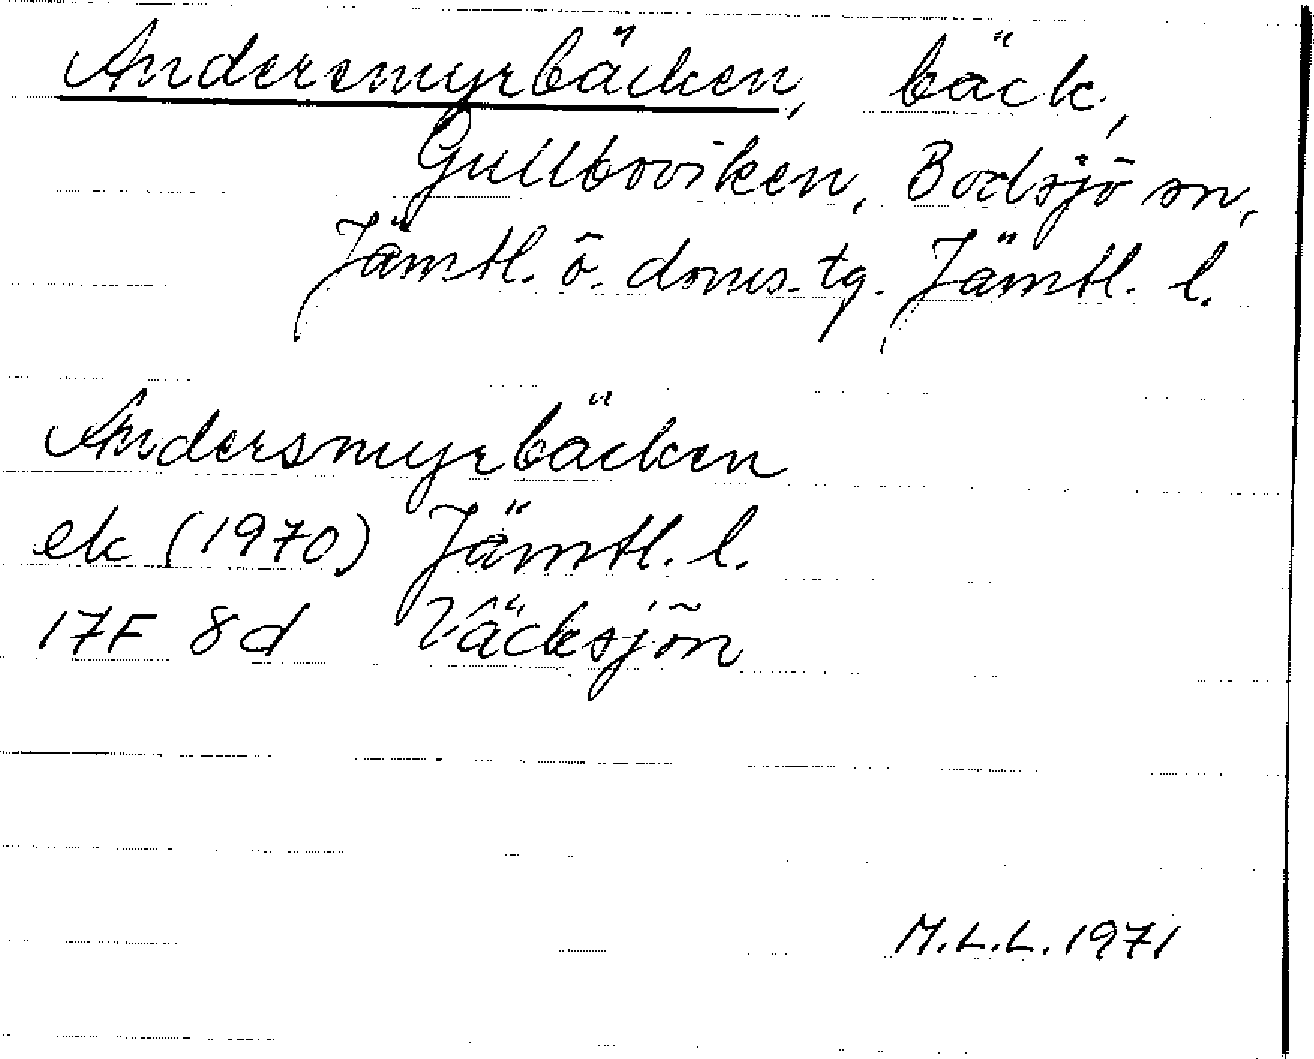 Andersmyrbäcken, bäck,
Gullboviken, Bodsjö sn,
Jämtl. ö. doms. tg. Jämtl. l.
Andersmyrbäcken
ek (1970) Jämtl. l.
17F 8d Väcksjön
M.L.L. 1971